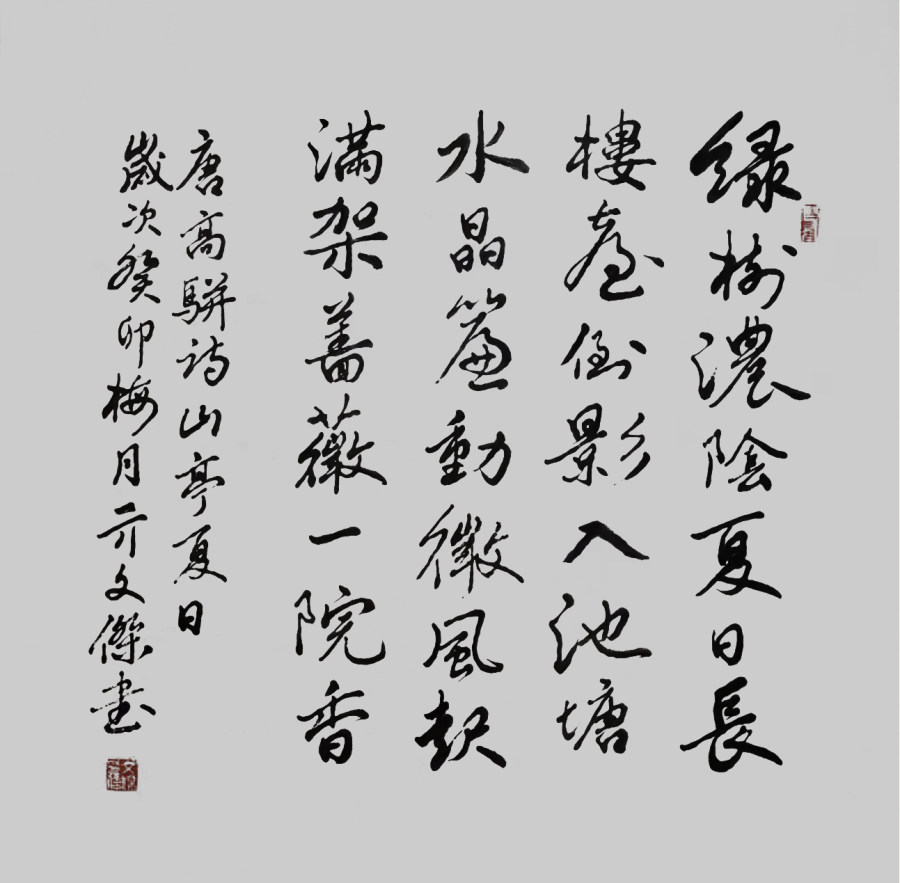 緑樹濃陰夏日長
樓臺倒影入池塘
水晶簾動微風起
滿架薔薇一院香
唐高駢詩山亭夏日
歲次癸卯梅月 文傑書